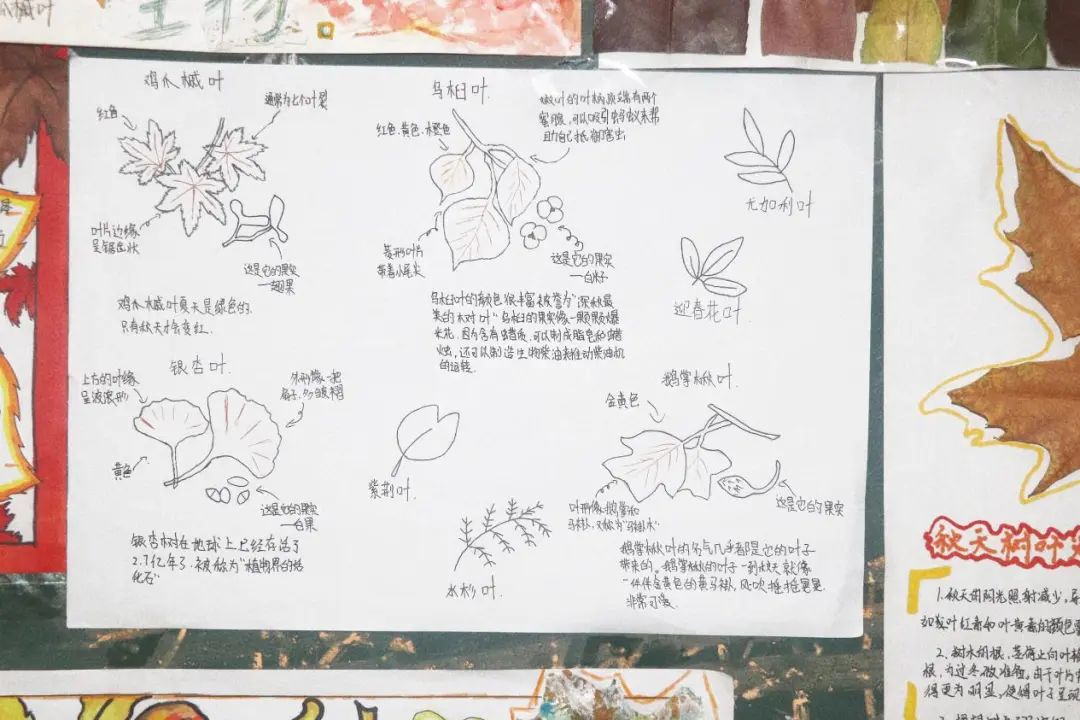 槭叶
鸡爪槭叶
红色
通常为七个叶裂
叶片边缘
呈锯齿状
这是它的果实
—翅果
鸡爪槭叶夏天是绿色的,
只有秋天才会变红.
乌桕叶.
红色、黄色、橙色
嫩叶的叶柄顶端有两个
蜜腺,可以吸引蚂蚁来帮
助自己抵御害虫
菱形叶片
带着小尾尖
这是它的果实
—白籽
乌桕叶的颜色很丰富被誉为"深秋最
美的树叶"乌桕的果实像一颗颗爆
米花,因为含有蜡质,可以制成肥皂和蜡
烛,还可以制造生物柴油来推动柴油机
的运转.
尤加利叶
迎春花叶.
银杏叶.
上方的叶缘
呈波浪形
外形像一把
扇子,多皱褶
黄色
这是它的果实
—白果
银杏树在地球上已经存活了
2.7亿年了.被称为"植物界的活
化石"
紫荆叶.
水杉叶.
鹅掌楸叶.
金黄色
叶形像鹅掌和
马褂,又称为"马褂木"
这是它的果实
鹅掌楸叶的名气几乎都是它的叶子
带来的。鹅掌楸的叶子一到秋天就像
一件件金黄色的黄马褂,风吹摇摇晃晃
非常可爱.
秋天树叶
1.秋天的阳光照射减少,
如类叶红素和叶黄素的颜色
2.树木的根、茎停止向叶
根,为过冬做准备,由于叶片中
得更为明显,使得叶子呈现